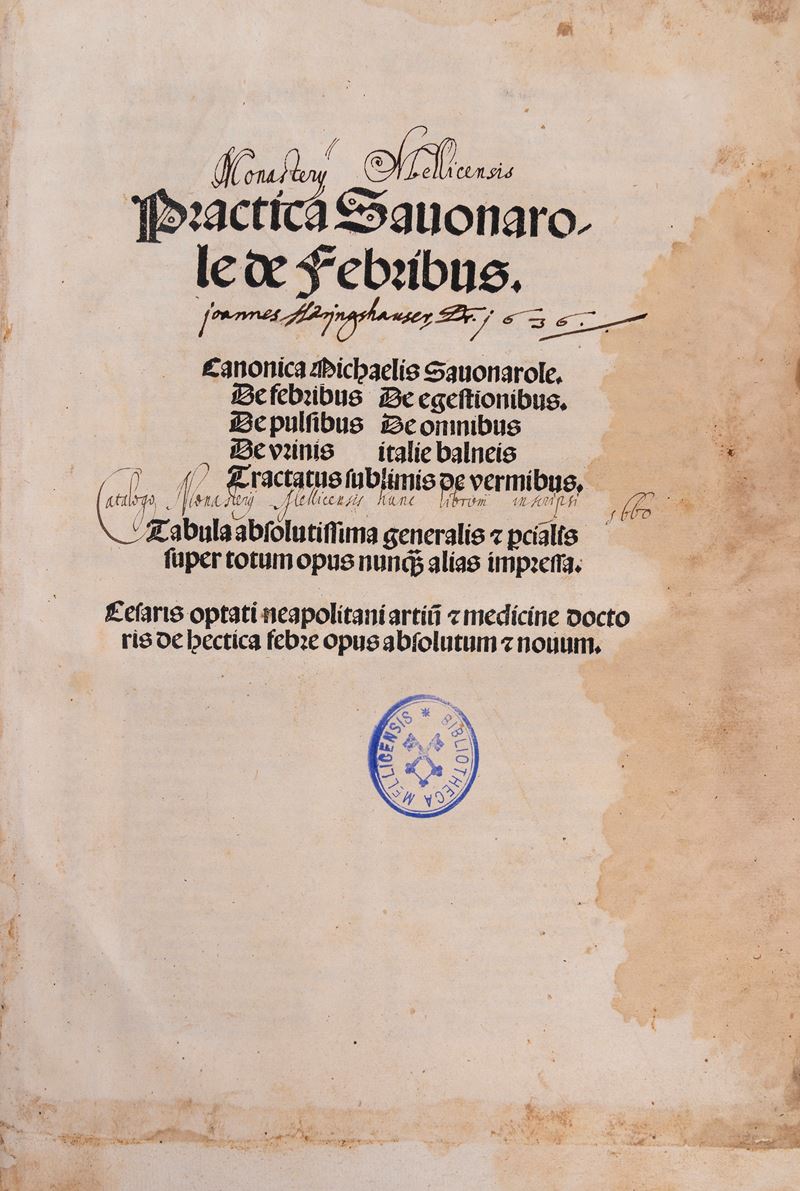 Monasterÿ Mellicensis
Practica Sauonaro-
le de Febribus.
Joannes Dr. 1636.
Canonica Michaelis Sauonarole.
De febribus De egeſtionibus.
De pulſibus De omnibus
De vrinis italie balneis
Tractatus ſublimis de vermibus.
Catalogo Monasterÿ Mellicensis hunc librum inscripsi 1660
Tabula abſolutiſſima generalis ⁊ ꝑcialis
ſuper totum opus nunqꝫ alias impreſſa.
Ceſaris optati neapolitani artiū ⁊ medicine docto
ris de hectica febre opus abſolutum ⁊ nouum.
BIBLIOTHECA MELLICENSIS *